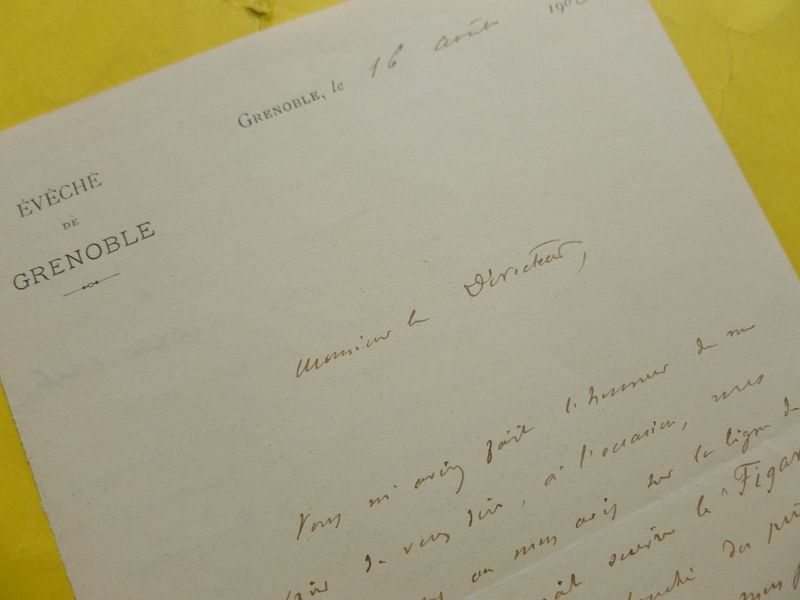 GRENOBLE, le 16 août 190
ÉVÊCHÉ
DE
GRENOBLE
Monsieur le Directeur,
Vous m'aviez fait l'honneur de me
de vous dire, à l'occasion, mes
ou mes avis sur la ligne de
suivre le "Figaro
du
mes